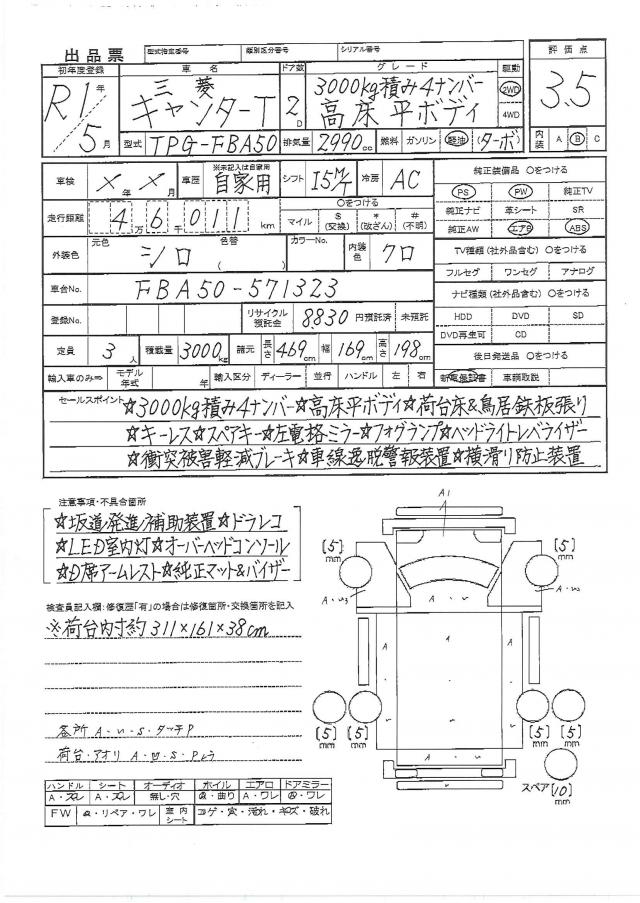 出品票 型式指定番号 類別区分番号 シリアル番号 評価点
初年度登録 車名 ドア数 グレード 駆動
R1年 三菱 3000kg積み4ナンバー 2WD 3.5
キャンターT 2D 高床 平ボディ 4WD
5月 型式 TPG-FBA50 排気量 2990cc 燃料 ガソリン 軽油 (ターボ) 内装 A B C
車検 X年X月 車歴 ※未記入は自家用 自家用 シフト I5M/T 冷房 AC 純正装備品 〇をつける
PS PW 純正TV
走行距離 4万6千011km 〇をつける マイル $(交換) *(改ざん) #(不明) 純正ナビ 革シート SR
純正AW エアB ABS
外装色 元色 シロ 色替 ( ) カラーNo. 内装色 クロ TV種類(社外品含む) 〇をつける
フルセグ ワンセグ アナログ
車台No. FBA50-571323 ナビ種類(社外品含む) 〇をつける
登録No. リサイクル預託金 8830円預託済 未預託 HDD DVD SD
DVD再生可 CD
定員 3人 積載量 3000kg 諸元 長さ 469cm 幅 169cm 高さ 198cm 後日発送品 〇をつける
輸入車のみ⇒ モデル年式 年 輸入区分 ディーラー 並行 ハンドル 左 右 新車保証書 車輌取説
セールスポイント ☆3000kg積み4ナンバー☆高床平ボディ☆荷台床&鳥居鉄板張り
☆キーレス☆スペアキー☆左電格ミラー☆フォグランプ☆ヘッドライトレベライザー
☆衝突被害軽減ブレーキ☆車線逸脱警報装置☆横滑り防止装置
注意事項・不具合箇所
☆坂道発進補助装置☆ドラレコ
☆LED室内灯☆オーバーヘッドコンソール
☆D席アームレスト☆純正マット&バイザー
検査員記入欄:修復歴「有」の場合は修復箇所・交換箇所を記入
※荷台内寸約311×161×38cm
各所 A・U・S・タッチP
荷台・アオリ A・U・S・P
A1
[5]mm [5]mm
A
[5]mm [5]mm [5]mm [5]mm
スペア [10]mm
ハンドル シート オーディオ ホイル エアロ ドアミラー
A・スレ A・スレ 無し・穴 A・曲り A・ワレ A・ワレ
FW A・リペア・ワレ 室内シート コゲ・穴・汚れ・キズ・破れ